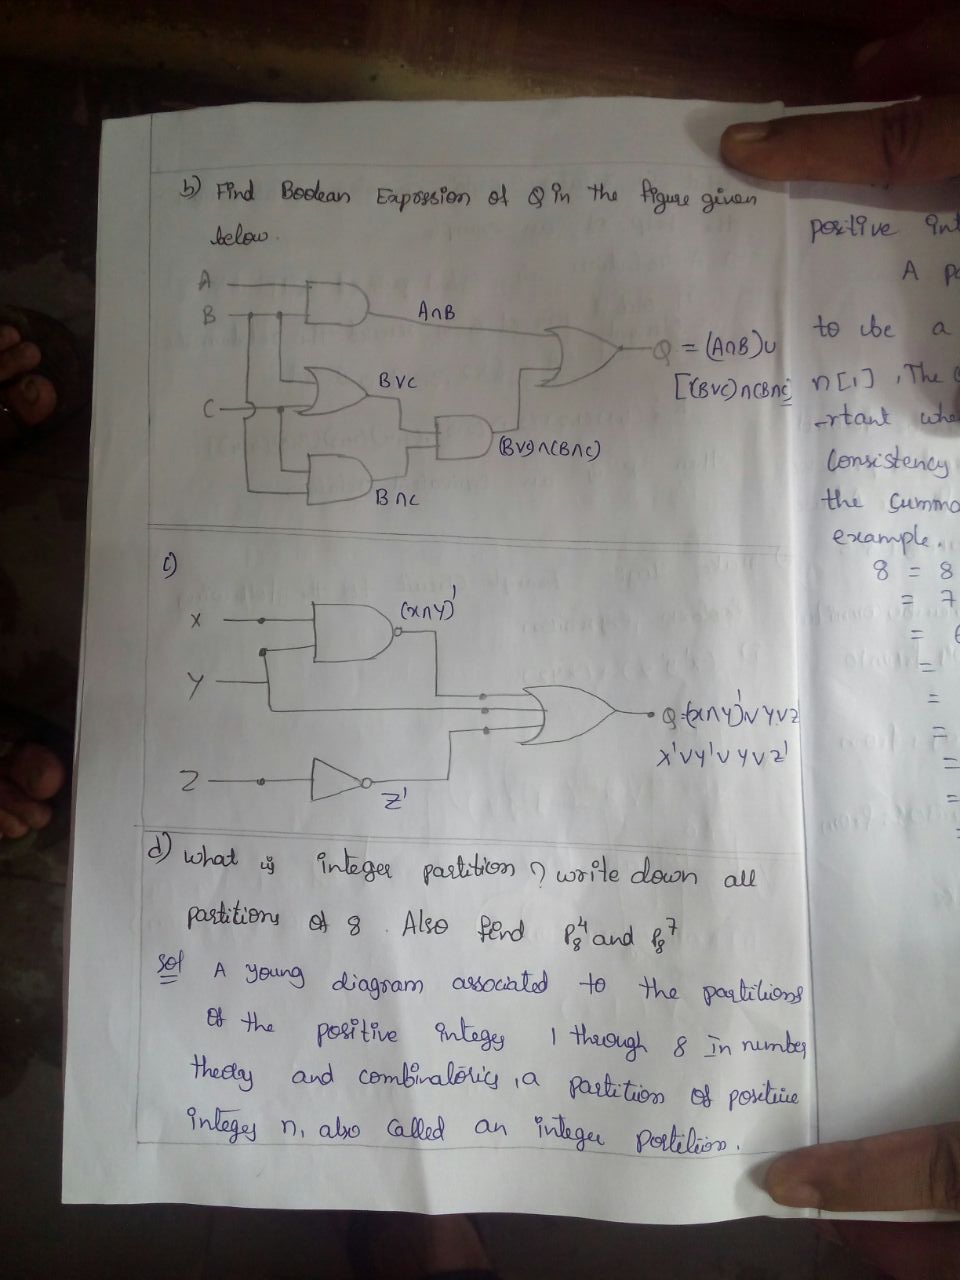 b) Find Boolean Expression of Q in the figure given
below.
A
B
A∩B
Q = (A∩B)∪
B∨C
[(B∨C)∩(B∩C]
C
(B∨C)∩(B∩C)
B∩C
c)
X
(x∩y)'
Y
Q=(x∩y)'∨Y∨Z
x'∨y'∨y∨z'
Z
Z'
d) what is integer partition? write down all
partitions of 8. Also find P₈⁴ and P₈⁷
Sol A young diagram associated to the partitions
of the positive integer 1 through 8 in number
theory and combinatorics, a partition of positive
integer n, also called an integer partition.
positive
A
to be a
n[1], The
-rtant
consistency
the
example.
8 = 8
= 7
=
=
=
=
=
=